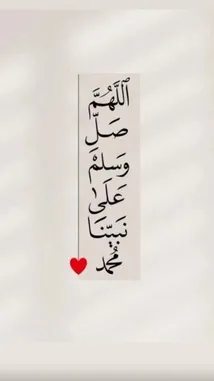 اللَّهُمَّ
صَلِّ
وَسَلِّمْ
عَلَىٰ
نَبِيِّنَا
مُحَمَّد